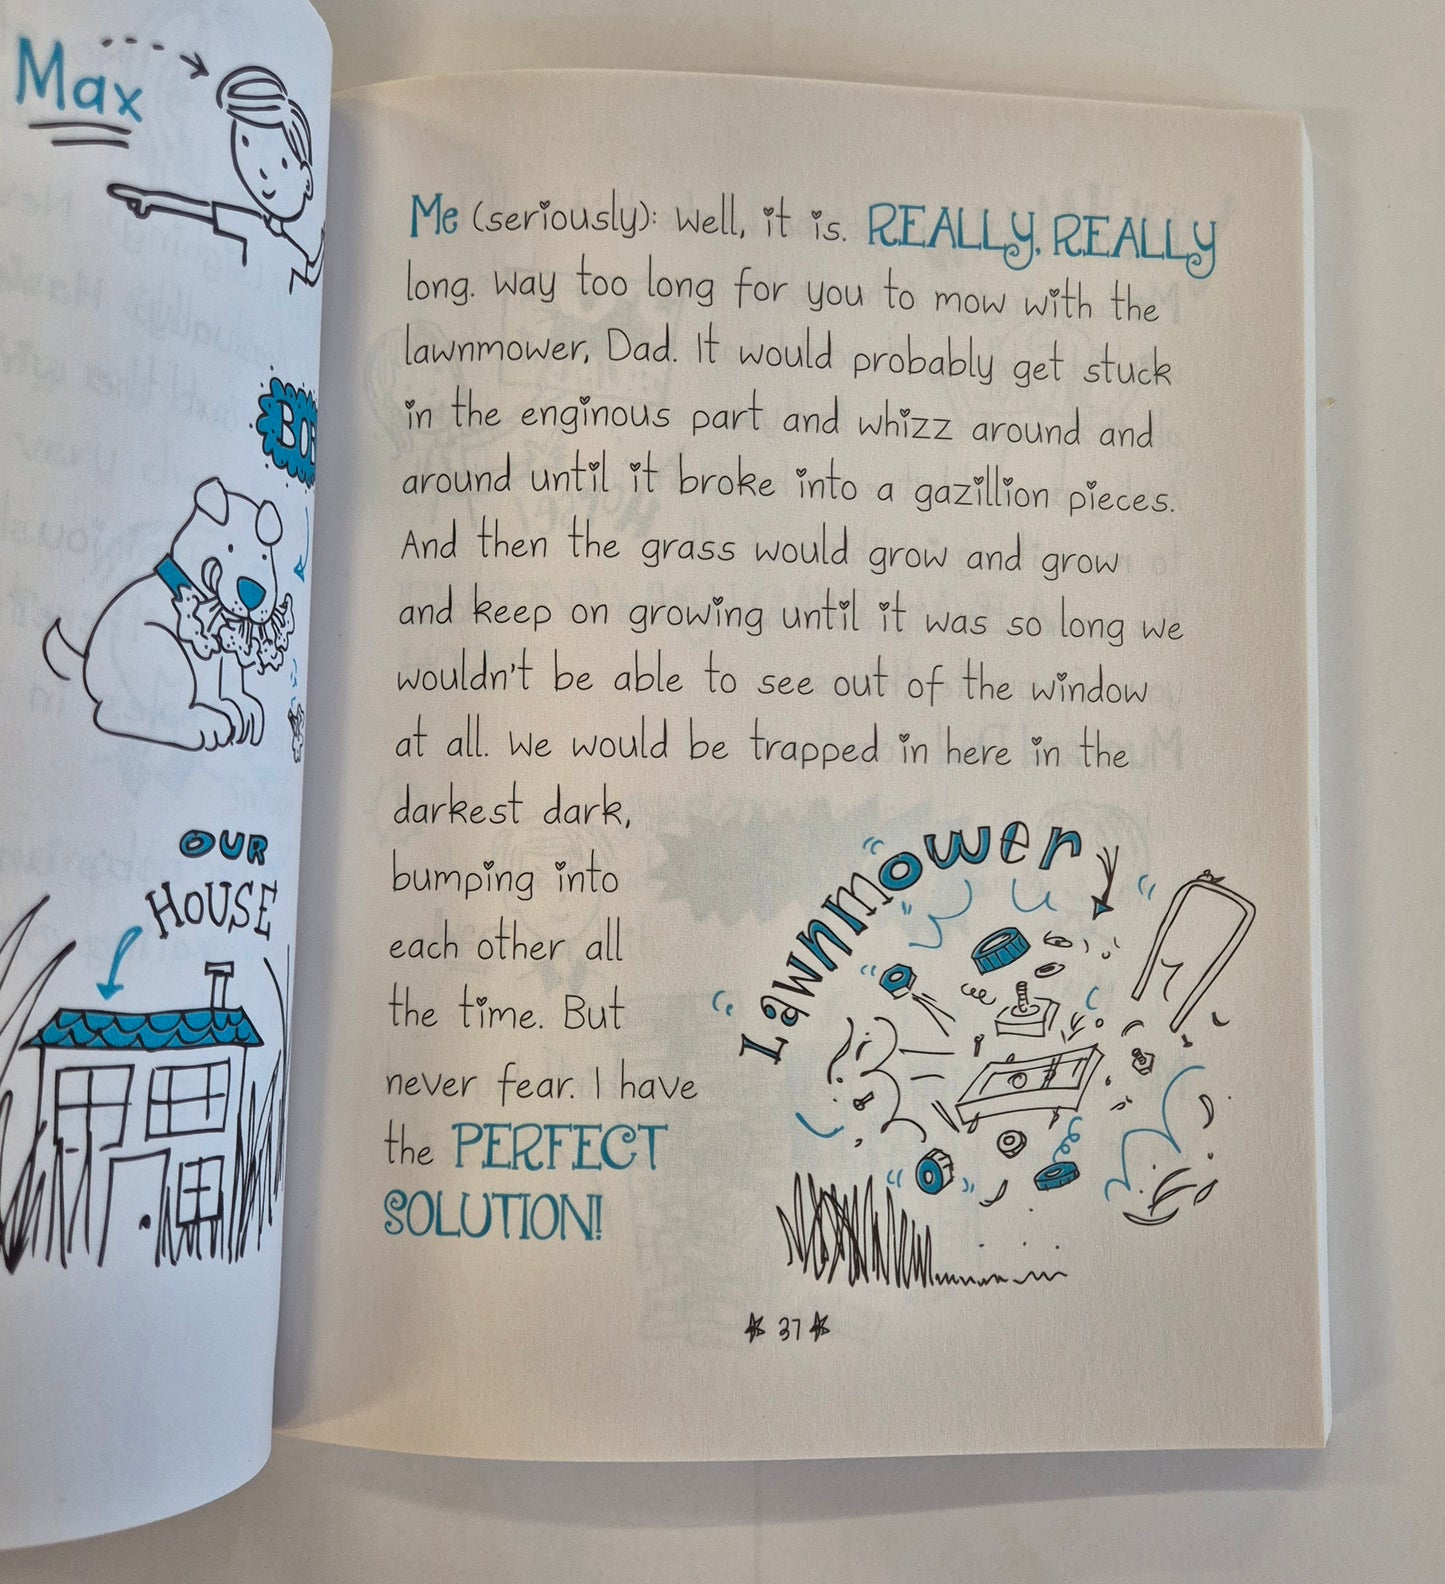 Max
OUR
HOUSE
Me (seriously): Well, it is. REALLY, REALLY
long. Way too long for you to mow with the
lawnmower, Dad. It would probably get stuck
in the enginous part and whizz around and
around until it broke into a gazillion pieces.
And then the grass would grow and grow
and keep on growing until it was so long we
wouldn't be able to see out of the window
at all. We would be trapped in here in the
darkest dark,
bumping into
each other all
the time. But
never fear. I have
the PERFECT
SOLUTION!
Lawnmower
37